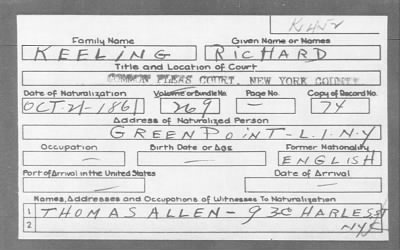 Family Name Given Name or Names
KEELING RICHARD
Title and Location of Court
COMMON PLEAS COURT, NEW YORK COUNTY
Date of Naturalization Volume or Bundle No. Page No. Copy of Record No.
OCT-21-1861 269 — 74
Address of Naturalized Person
GREENPOINT-L.I.N.Y
Occupation Birth Date or Age Former Nationality
— — ENGLISH
Port of Arrival in the United States Date of Arrival
— —
Names, Addresses and Occupations of Witnesses To Naturalization
1 THOMAS ALLEN - 93 CHARLES ST
2 NYC